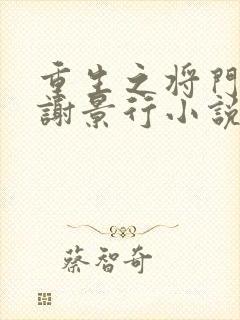 重生之将門
謝景行小説
蔡智奇